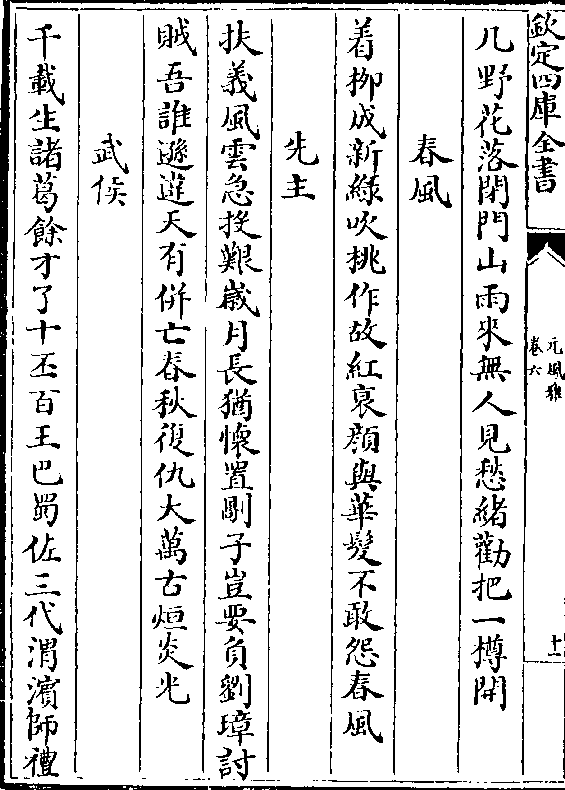 欽定四庫全書
元風雅
卷六
十一
几野花落閉門山雨來無人見愁緒勸把一樽開
春風
着柳成新綠吹桃作故紅衰顏與華髮不敢怨春風
先主
扶義風雲急投艱歲月長猶懷置剛子豈要負劉璋討
賊吾誰遜違天有併亡春秋復仇大萬古烜炎光
武侯
千載生諸葛餘才了十丕百王巴蜀佐三代渭濱師禮